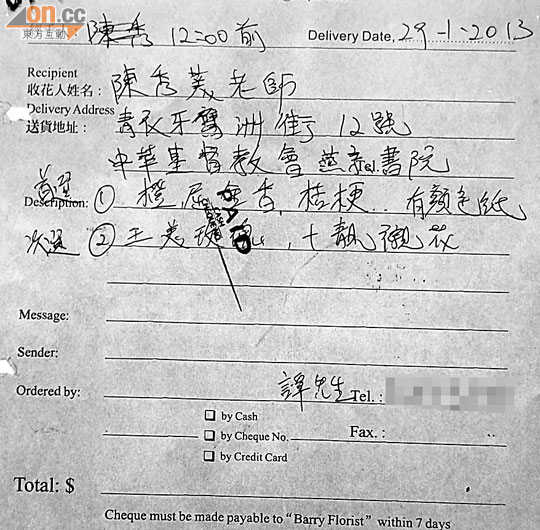 on.cc
東方互動
陳秀 12=00前 Delivery Date, 29-1-2013
Recipient
收花人姓名: 陳秀美老師
Delivery Address
送貨地址: 青衣牙鷹洲街 12號
中華基督教會燕京書院 Tel.
首選
Description: ① 橙 香, 桔梗... 有顏色紙
次選 ② 玉美, 十靚襯花
Message:
Sender:
Ordered by: 譚先生 Tel. :
by Cash
by Cheque No. Fax. :
by Credit Card
Total: $
Cheque must be made payable to "Barry Florist" within 7 days